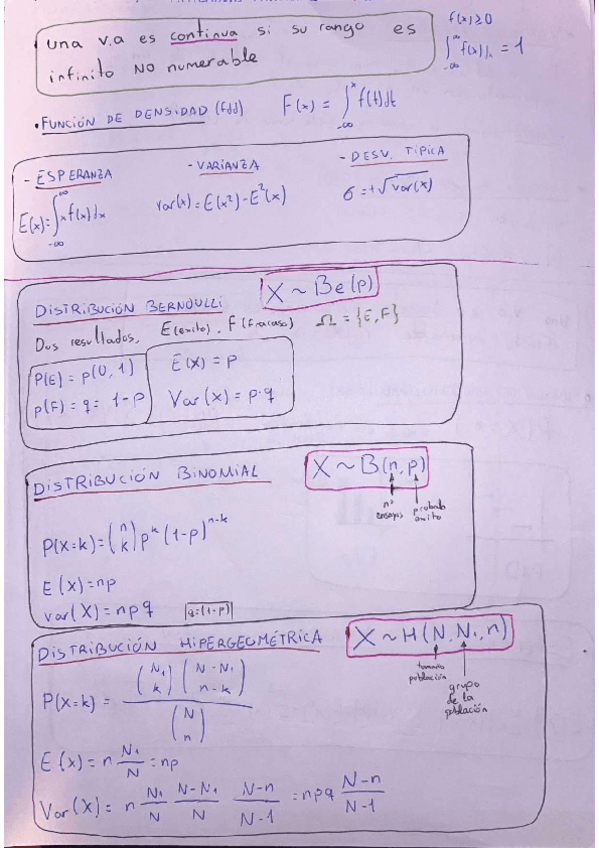 una v.a es continua si su rango es
infinito NO numerable
f(x) ≥ 0
∫_{-∞}^{∞} f(x)dx = 1
• FUNCIÓN DE DENSIDAD (fdd)
F(x) = ∫_{-∞}^{x} f(t)dt
- ESPERANZA
E(x) = ∫_{-∞}^{∞} x f(x) dx
- VARIANZA
var(x) = E(x²) - E²(x)
- DESV. TÍPICA
σ = +√var(x)
DISTRIBUCIÓN BERNOULLI
X ~ Be(p)
Dos resultados, E(exito), F(fracaso) Ω = {E, F}
P(E) = p(0, 1)
p(F) = q = 1-p
E(X) = p
Var(X) = p·q
DISTRIBUCIÓN BINOMIAL
X ~ B(n, p)
nº ensayos
probab. exito
P(X=k) = (n k) p^k (1-p)^{n-k}
E(X) = np
var(X) = npq
q=(1-p)
DISTRIBUCIÓN HIPERGEOMÉTRICA
X ~ H(N, N₁, n)
tamaño población
grupo de la población
P(X=k) = (N₁ k) (N-N₁ n-k) / (N n)
E(x) = n N₁/N = np
Var(X) = n N₁/N N-N₁/N N-n/N-1 = npq N-n/N-1